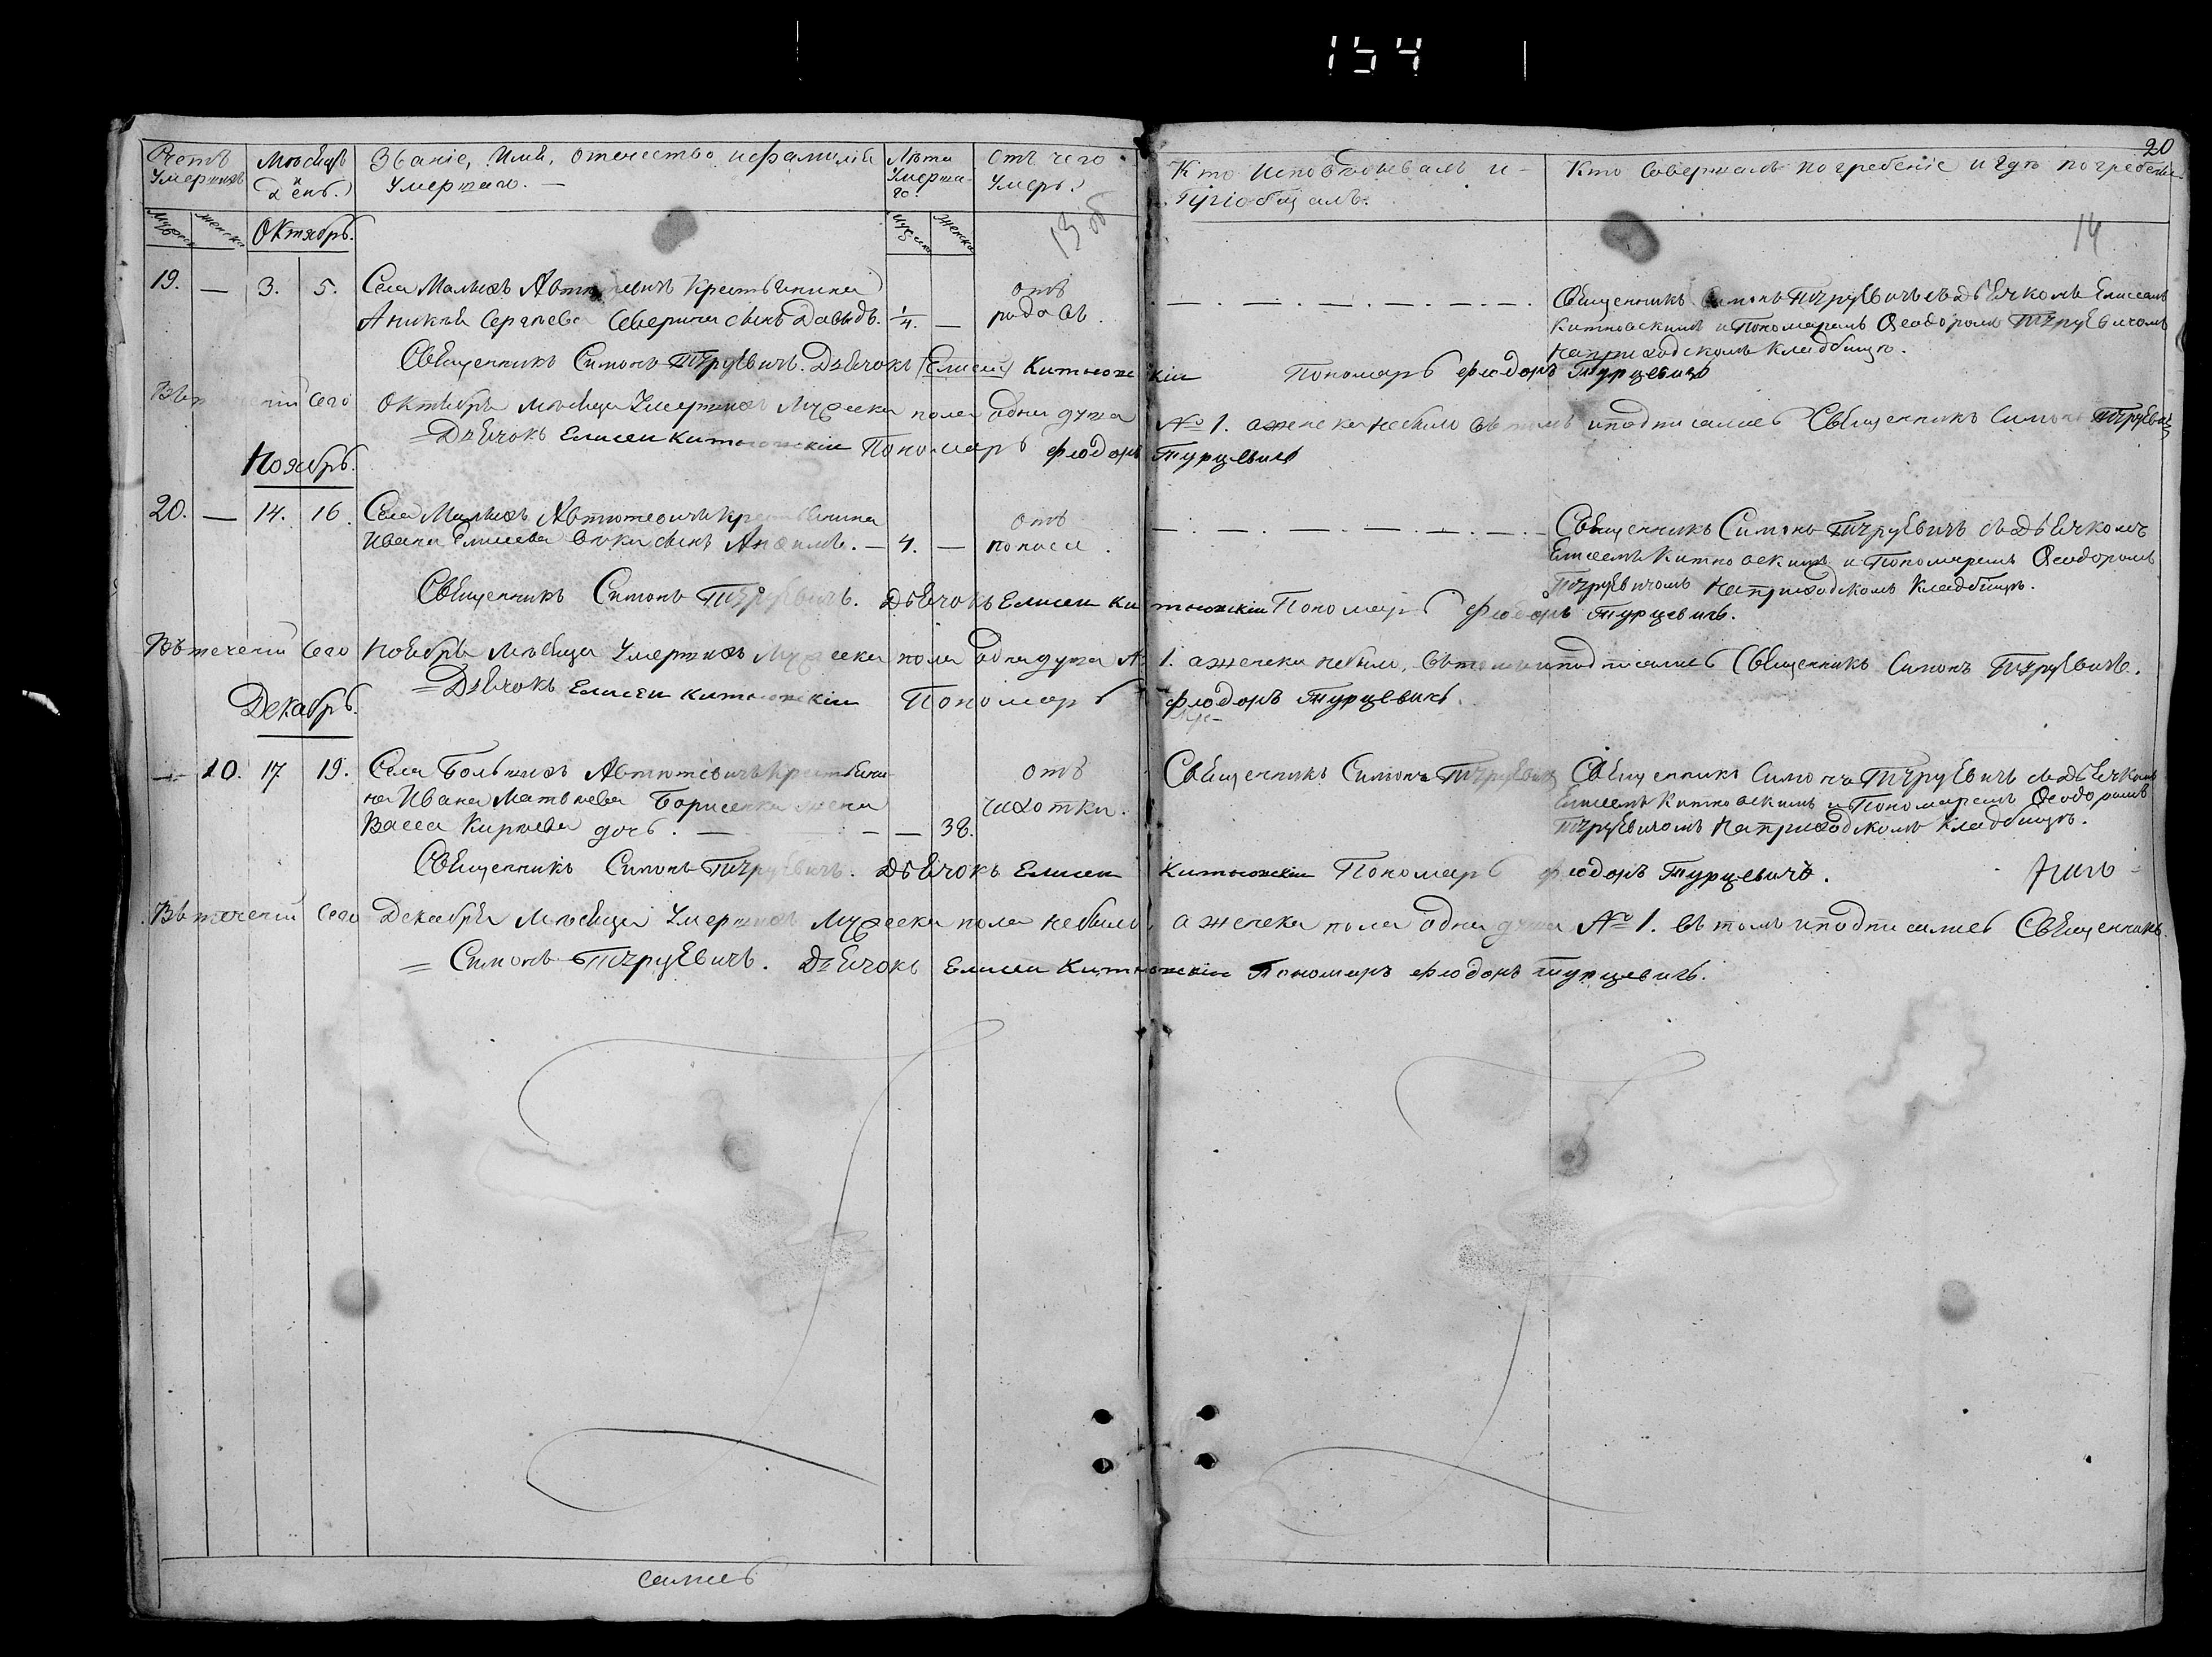 154
20
Счетъ Умершихъ
Мѣсяцъ и День.
Званіе, Имя, отечество и фамилія Умершаго. —
Лѣта Умершаго.
Отъ чего Умеръ.
Кто Исповѣдывалъ и Пріобщалъ.
Кто Совершалъ погребеніе и гдѣ погребены
Мужеска
Женска
Октябрь.
Мужеска
Женска
13 об
14
19. — 3. 5. Села Малыхъ Автютевичъ Крестьянина
отъ
Аникія Сергѣева сынъ Давыдъ. 1/4. — родовъ.
— . — . — . — . — . — .
Священникъ Симонъ Турцевичъ съ Дьячкомъ Елисеемъ
и Пономаремъ Ѳеодоромъ Турцевичомъ
на приходскомъ кладбищѣ.
Священникъ Симонъ Турцевичъ. Дьячокъ Елисей Пономарь Фіодоръ Турцевичъ
сего Октября мѣсяца Умершихъ Мужеска пола одна душа № 1. а женска небыло въ томъ и подписалися Священникъ Симонъ Турцевичъ
= Дьячокъ Елисеи Пономарь Фіодоръ Турцевичъ
Ноябрь.
20. — 14. 16. Села Малыхъ Автютевичъ Крестьянина
отъ
Ивана Елисеева сынъ — 4. — поноса.
— . — . — . — . — . —
Священникъ Симонъ Турцевичъ съ Дьячкомъ
Елисеемъ и Пономаремъ Ѳеодоромъ
Турцевичомъ на приходскомъ Кладбищѣ.
Священникъ Симонъ Турцевичъ. Дьячокъ Елисеи Пономарь Фіодоръ Турцевичъ.
Въ теченіи сего Ноября мѣсяца Умершихъ Мужеска пола одна душа № 1. а женска небыло, въ томъ и подписалися Священникъ Симонъ Турцевичъ.
= Дьячокъ Елисеи Пономарь Фіодоръ Турцевичъ.
Декабрь.
— 10. 17 19. Села Большихъ Автютевичъ Крестьяни-
отъ
на Ивана Матвѣева Борисенка жена
чахотки.
Васса Кирѣева дочь. — — — 38.
Священникъ Симонъ Турцевичъ
Священникъ Симонъ Турцевичъ съ Дьячкомъ
Елисеемъ и Пономаремъ Ѳеодоромъ
Турцевичомъ на приходскомъ кладбищѣ.
Священникъ Симонъ Турцевичъ. Дьячокъ Елисеи Пономарь Фіодоръ Турцевичъ.
Въ теченіи сего Декабря мѣсяца Умершихъ Мужеска пола небыло, а женска пола одна душа № 1. въ томъ и подписалися Священникъ
= Симонъ Турцевичъ. Дьячокъ Елисеи Пономарь Фіодоръ Турцевичъ.
салися